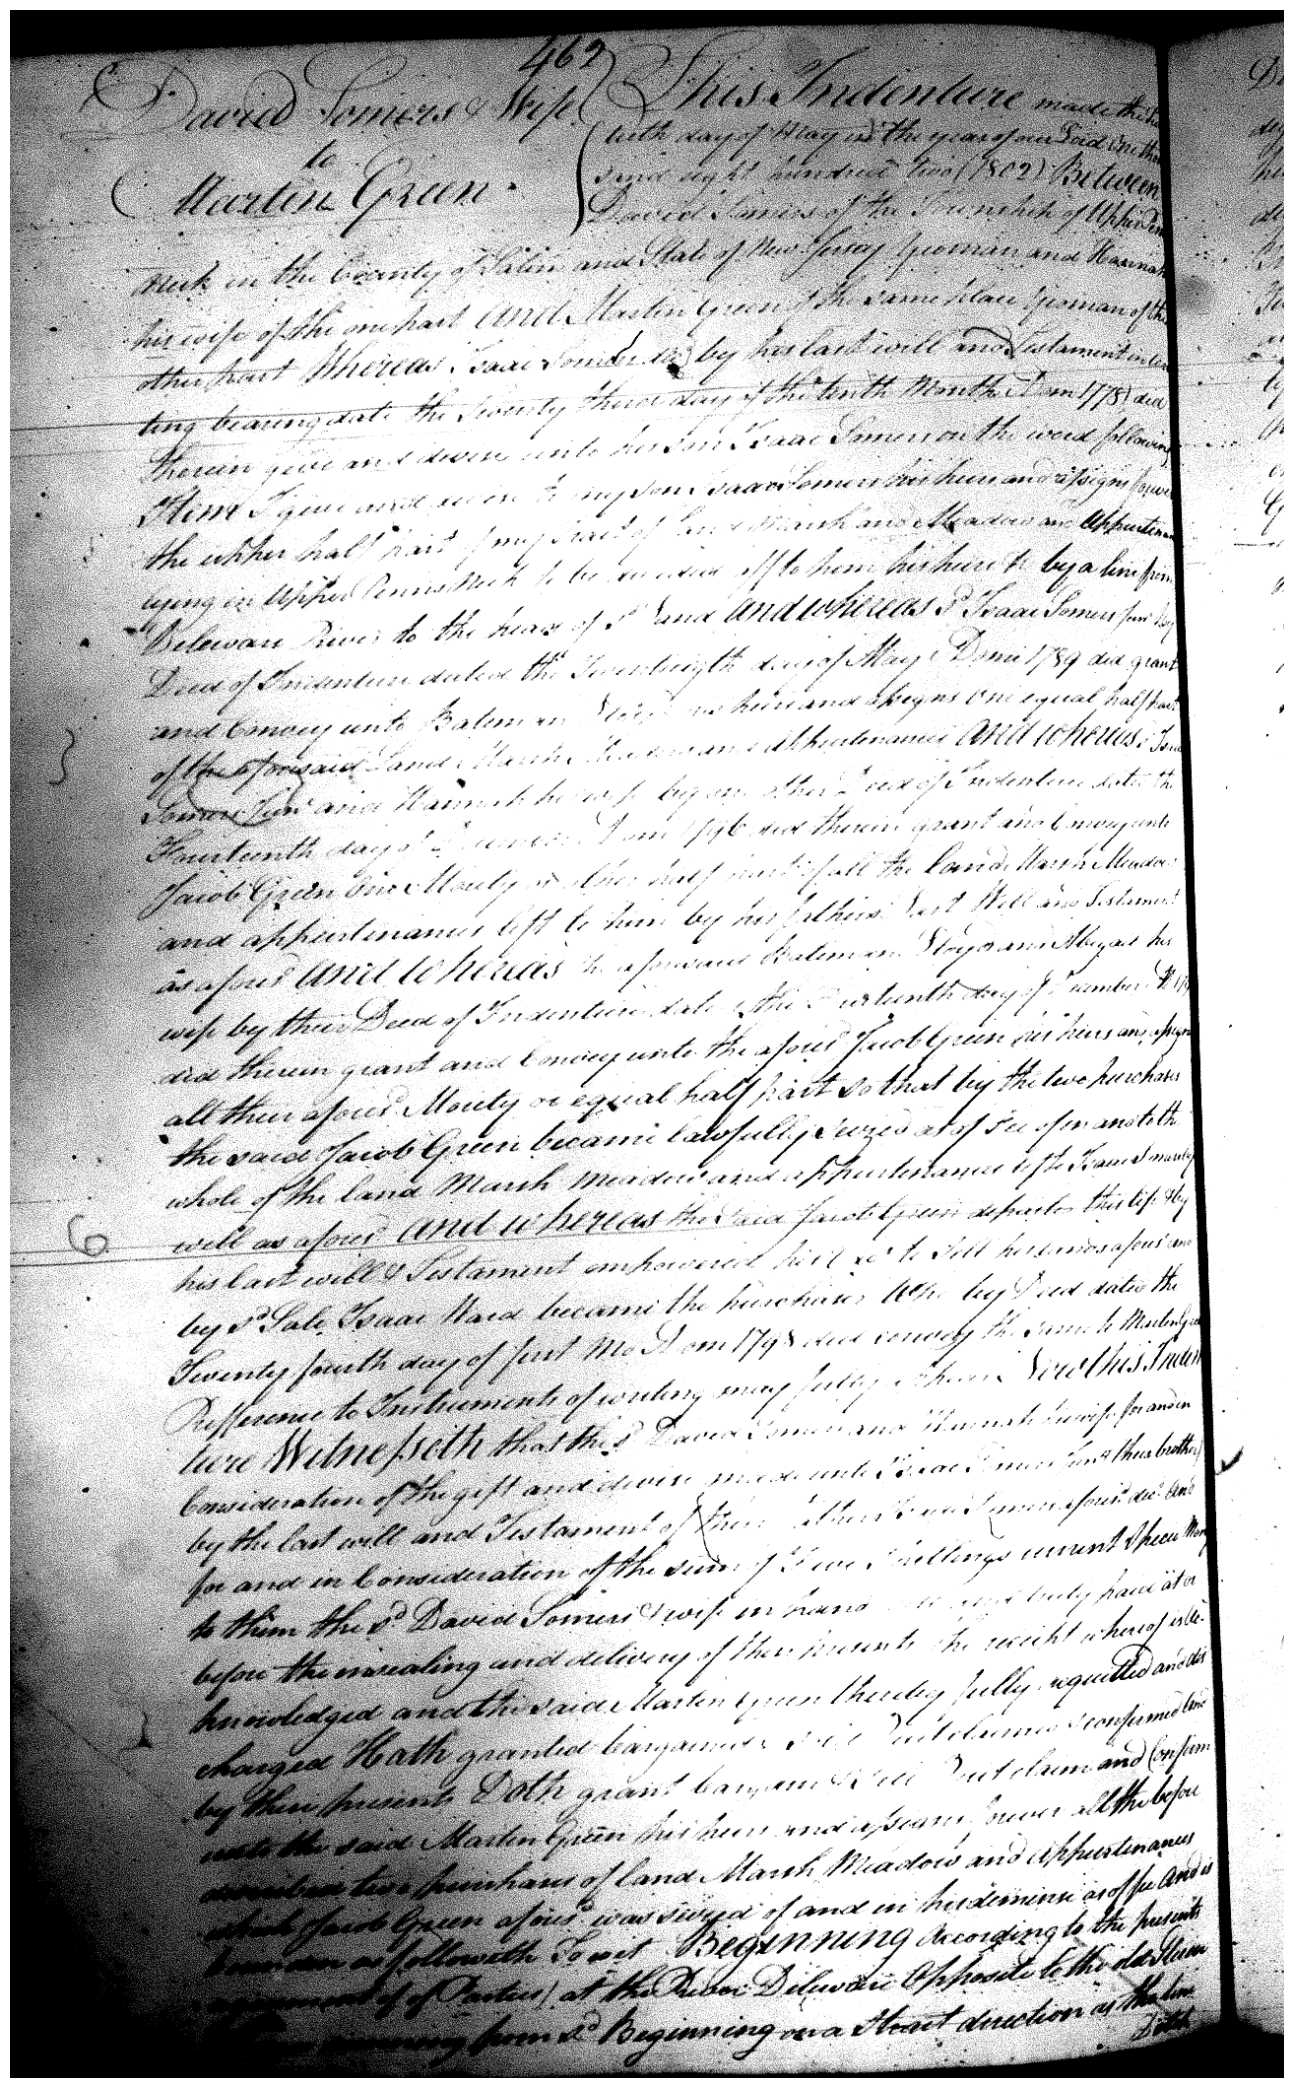 462
David Somers & Wife
to
Martin Green
This Indenture made the
day of May in the year of our Lord One thou
sand eight hundred two (1802) Between
David Somers of the Township of Upper Penns
Neck in the County of Salem and State of New Jersey Yeoman and Hannah
his wife of the one part And Martin Green of the same place Yeoman of the
other part Whereas Isaac Somers by his last will and Testament in wri
ting bearing date the Twenty third day of the tenth Month A Dom 1778 did
therein give and devise unto his son Isaac Somers on the word following
Item I give and devise to my son Isaac Somers his heirs and assigns forever
the upper half part of my tract of Land Marsh and Meadow and Appurtenan
lying in Upper Penns Neck to be divided off to him his heirs &c by a line from
Deleware River to the head of sd Land And whereas sd Isaac Somers Junr by
Deed of Indenture dated the day of May A Domi 1789 did grant
and Convey unto Bateman Lloyd his heirs and assigns one equal half part
of the aforesaid Land Marsh Meadow and Appurtenances And whereas Isaac
Somers Junr and Hannah his wife by one other Deed of Indenture dated the
Fourteenth day of A Dom 1796 did therein grant and Convey unto
Jacob Green One Moiety or other half part of all the Land Marsh Meadow
and appurtenances left to him by his fathers Last Will and Testament
as aforesd And whereas the aforesaid Bateman Lloyd and Abigal his
wife by their Deed of Indenture dated the day of December
did therein grant and Convey unto the aforesd Jacob Green his heirs and assigns
all their aforesd Moiety or equal half part so that by the two purchases
the said Jacob Green became lawfully seized as of fee of in and to the
whole of the land Marsh meadow and appurtenances left to Isaac Somers by
will as aforesd And whereas the said Jacob Green departed this life & by
his last will & Testament empowered his to Sell his lands aforesd and
by sd Sale Isaac Ward became the purchaser Who by Deed dated the
Twenty fourth day of first Mo A Dom 1798 did convey the same to Martin Green
Refference to Instruments of writing may fully appear Now this Inden
ture Witnesseth that the sd David Somers and Hannah his wife for and in
Consideration of the gift and devise made unto Isaac Somers Junr their brother
by the last will and Testament of their father Isaac Somers aforesd decd And
for and in Consideration of the sum of Five Shillings current Specie Money
to them the sd David Somers & wife in hand well and truly paid at or
before the ensealing and delivery of these presents the receipt whereof is Ac
knowledged and the said Martin Green thereby fully acquitted and dis
charged Hath granted bargained & Sold Quitclaimed & confirmed and
by these presents Doth grant bargain & Sell Quitclaim and Confirm
unto the said Martin Green his heirs and assigns forever all the before
described two purchases of land Marsh Meadow and Appurtenances
which Jacob Green aforesd was seized of and in his demesne as of fee And is
bounden as followeth To wit Beginning According to the presents
agreement of Parties) at the River Deleware Opposite to the old
running from sd Beginning on a Strait direction as the line
Ditch